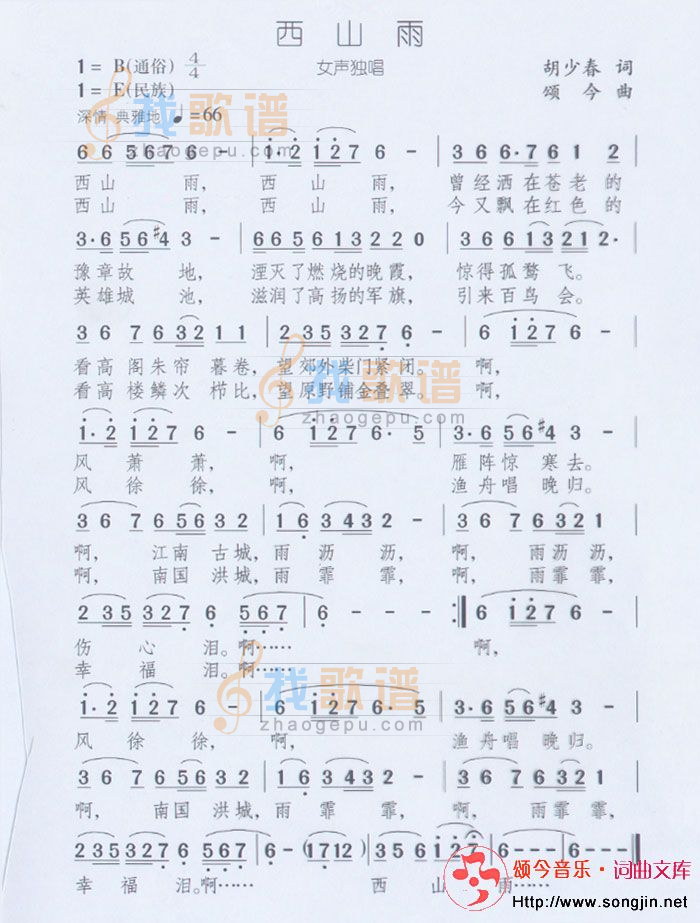 西山雨
1 = B(通俗) 4/4
女声独唱
胡少春 词
1 = E(民族)
颂今 曲
深情 典雅地 ♩=66
找歌谱
zhaogepu.com
6 6 5 6 7 6 - | 1· 2 1 2 7 6 - | 3 6 6· 7 6 1 2
西山 雨, 西 山 雨, 曾经洒在苍老的
西山 雨, 西 山 雨, 今又飘在红色的
3· 6 5 6 #4 3 - | 6 6 5 6 1 3 2 2 0 | 3 6 6 1 3 2 1 2·
豫章故 地, 湮灭了燃烧的晚霞, 惊得孤鹜 飞。
英雄城 池, 滋润了高扬的军旗, 引来百鸟 会。
3 6 7 6 3 2 1 1 | 2 3 5 3 2 7 6 - | 6 1 2 7 6 -
看高 阁朱帘 暮卷, 望郊外柴门紧 闭。 啊,
看高 楼鳞次 栉比, 望原野铺金叠 翠。 啊,
找歌谱
zhaogepu.com
1· 2 1 2 7 6 - | 6 1 2 7 6· 5 | 3· 6 5 6 #4 3 -
风 萧 萧, 啊, 雁阵惊 寒去。
风 徐 徐, 啊, 渔舟唱 晚归。
3 6 7 6 5 6 3 | 1 6 3 4 3 2 - | 3 6 7 6 3 2 1
啊, 江南 古城, 雨 沥沥, 啊, 雨沥沥,
啊, 南国 洪城, 雨 霏霏, 啊, 雨霏霏,
2 3 5 3 2 7 6 5 6 7 | 6 - - - :‖ 6 1 2 7 6
伤 心 泪。啊…… 啊,
幸 福 泪。啊……
找歌谱
zhaogepu.com
1· 2 1 2 7 6 - | 6 1 2 7 6· 5 | 3· 6 5 6 #4 3 -
风 徐 徐, 啊, 渔舟唱 晚归。
3 6 7 6 5 6 3 | 1 6 3 4 3 2 - | 3 6 7 6 3 2 1
啊, 南国 洪城, 雨 霏霏, 啊, 雨霏霏,
2 3 5 3 2 7 6 5 6 7 | 6 - (1 7 1 2) | 3 5 6 1 2 7 | 6 - - - | 6 - - - ‖
幸 福 泪。啊…… 西 山 雨……
颂今音乐·词曲文库
Http://www.songjin.net